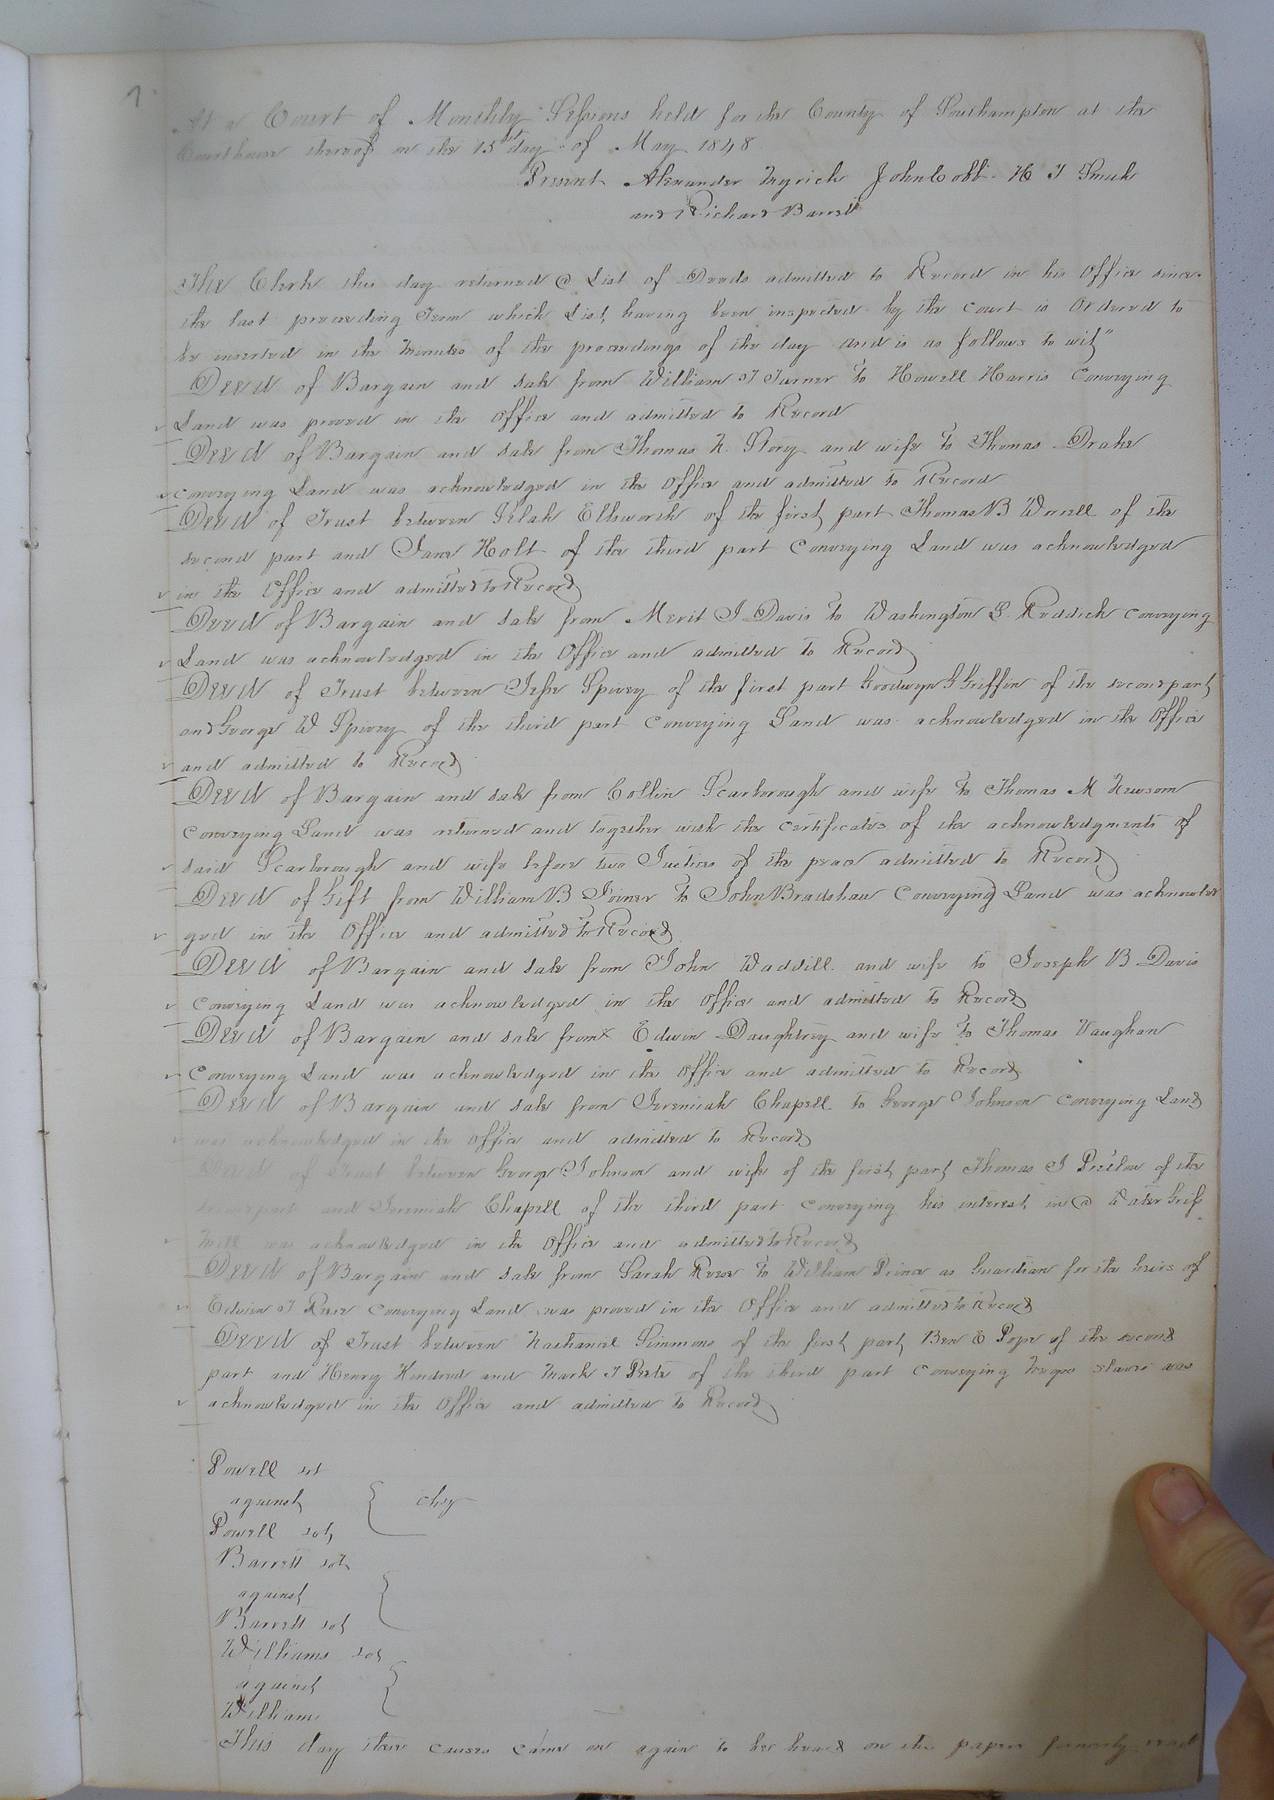 1.
At a Court of Monthly Sessions held for the County of Southampton at the
Courthouse thereof on the 15th day of May 1848
Present Alexander Myrick John Cobb H T Smith
and Richard Barrett
The Clerk this day returned a List of Deeds admitted to Record in his Office since
the last preceeding Term which List having been inspected by the court is Ordered to
be inserted in the Minutes of the proceedings of the day and is as follows to wit"
Deed of Bargain and Sale from William T Turner to Howell Harris Conveying
Land was proved in the Office and admitted to Record
Deed of Bargain and Sale from Thomas N. Story and wife to Thomas Drake
conveying Land was acknowledged in the Office and admitted to Record
Deed of Trust between Ellsworth of the first part Thomas B Worrell of the
second part and Jane Holt of the third part Conveying Land was acknowledged
in the Office and admitted to Record
Deed of Bargain and Sale from Merit J Davis to Washington L. Reddick Conveying
Land was acknowledged in the Office and admitted to Record
Deed of Trust between Jesse Spivey of the first part Goodwyn G Griffin of the second part
and George W Spivey of the third part Conveying Land was acknowledged in the Office
and admitted to Record
Deed of Bargain and Sale from Collin Scarborough and wife to Thomas M Newsom
Conveying Land was returned and together with the certificates of the acknowledgments of
said Scarborough and wife before two Justices of the peace admitted to Record
Deed of Gift from William B Joiner to John Bradshaw Conveying Land was acknowled
ged in the Office and admitted to Record
Deed of Bargain and Sale from John Waddill and wife to Joseph B Davis
Conveying Land was acknowledged in the Office and admitted to Record
Deed of Bargain and Sale from Edwin Daughtrey and wife to Thomas Vaughan
Conveying Land was acknowledged in the Office and admitted to Record
Deed of Bargain and Sale from Jeremiah Chapell to George Johnson Conveying Land
was acknowledged in the Office and admitted to Record
Deed of Trust between George Johnson and wife of the first part Thomas J Pretlow of the
second part and Jeremiah Chapell of the third part conveying his interest in a Water Grist
Mill was acknowledged in the Office and admitted to Record
Deed of Bargain and Sale from Sarah Reese to William Prince as Guardian for the heirs of
Edwin T Reese Conveying Land was proved in the Office and admitted to Record
Deed of Trust between Nathaniel Simmons of the first part Ben E Pope of the second
part and Henry Kindred and Mark T Peete of the third part Conveying Negro slaves was
acknowledged in the Office and admitted to Record
Powell &c
against
Powell &c
Chy
Barrett &c
against
Barrett &c
Williams &c
against
Williams
This day these causes came on again to be heard on the papers formerly read